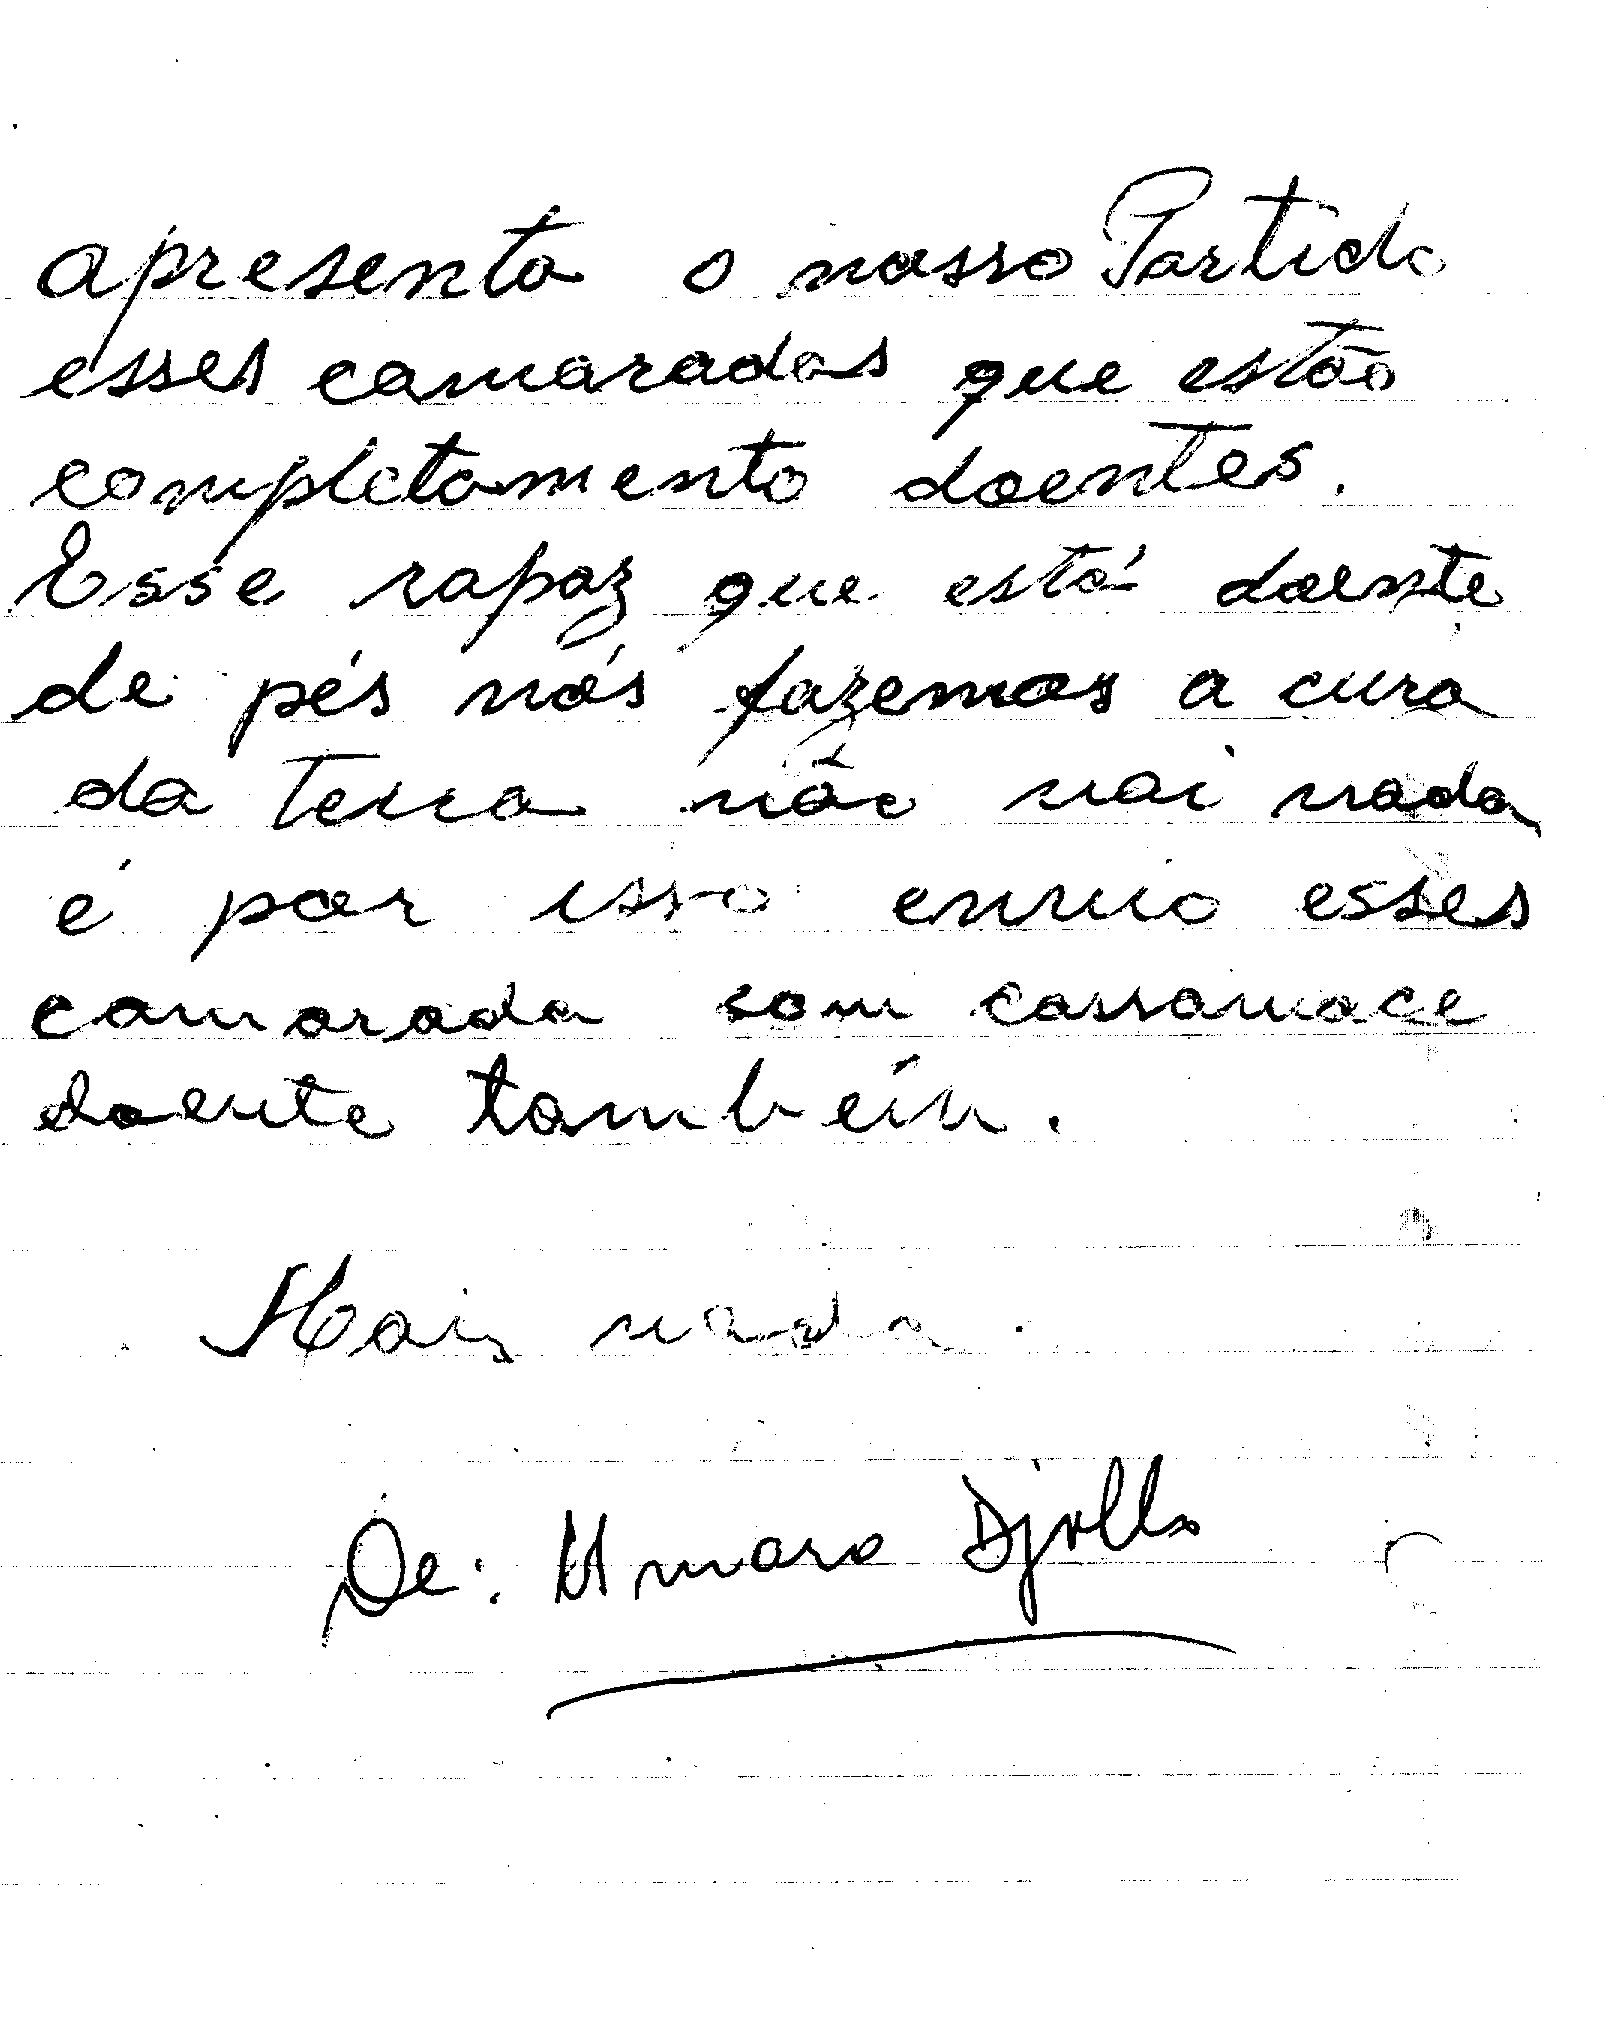 apresenta o nosso Partido
esses camaradas que estão
completamento doentes.
Esse rapaz que está doente
de pés nós fazemos a cura
da terra não vai nada
é por isso envio esses
camarada com cassamace
doente também.
Mais nada.
De: Umaro Djollo